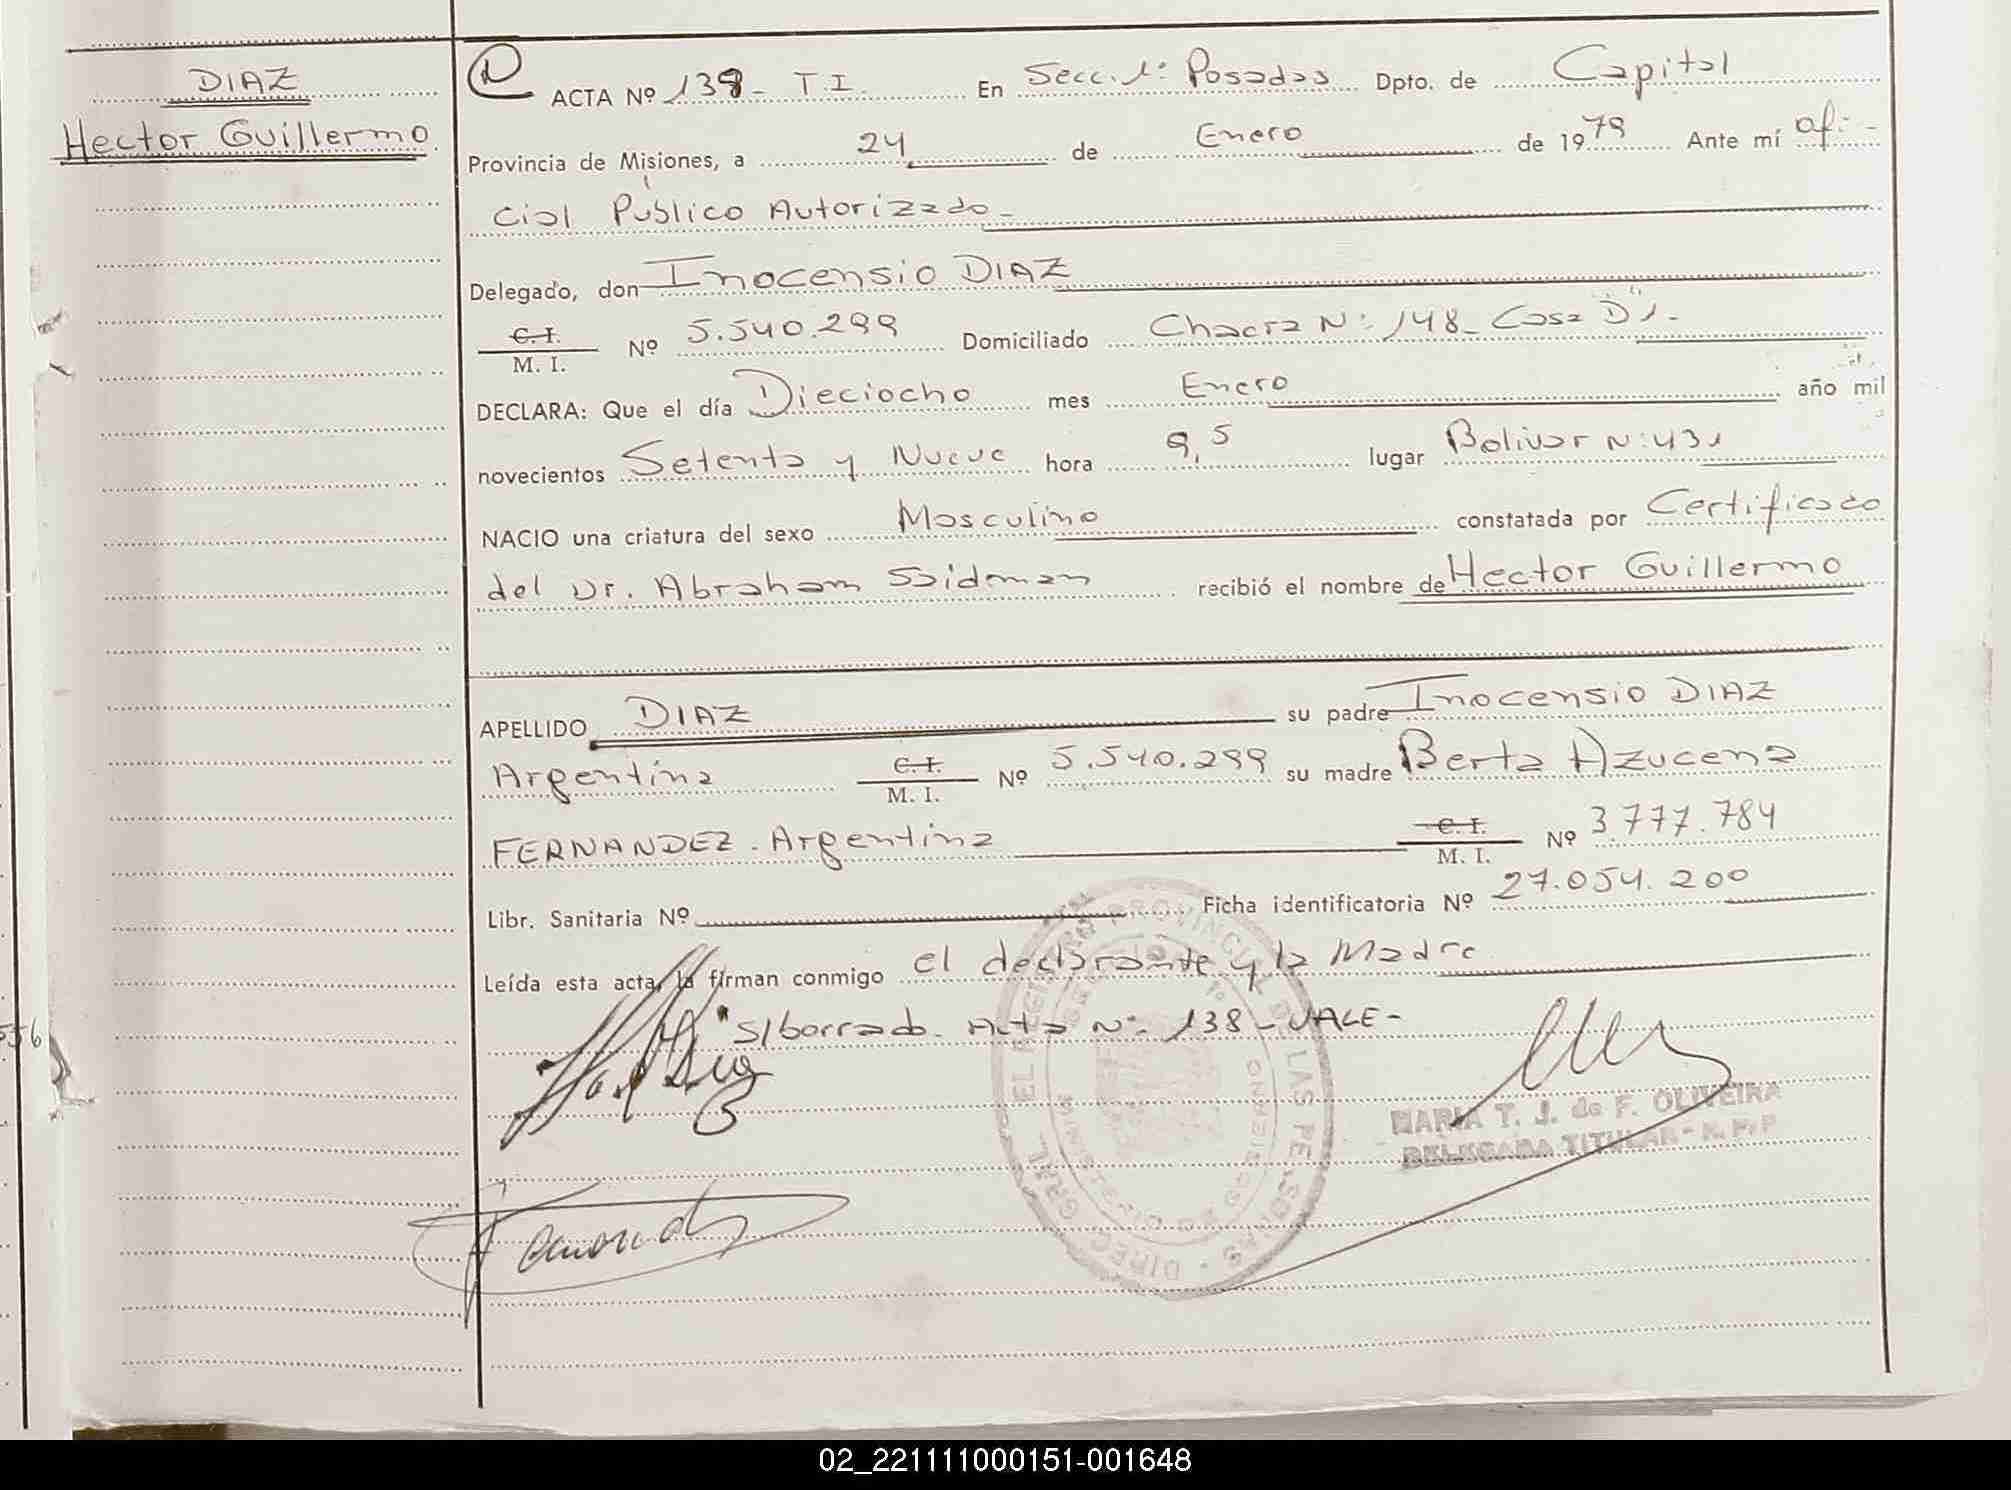 DIAZ
Hector Guillermo
ACTA Nº 138- T.I. En Secc. 1ª Posadas Dpto. de Capital
Provincia de Misiones, a 24 de Enero de 1979 Ante mí ofi-
cial Público Autorizado-
Delegado, don Inocensio DIAZ
C.I. M. I. Nº 5.540.299 Domiciliado Chacra Nº 148- Casa "D"1-
DECLARA: Que el día Dieciocho mes Enero año mil
novecientos Setenta y Nueve hora 9,5 lugar Bolivar Nº 431
NACIO una criatura del sexo Masculino constatada por Certificado
del Dr. Abraham Saidman recibió el nombre de Hector Guillermo
APELLIDO DIAZ su padre Inocensio DIAZ
Argentina C.I. M. I. Nº 5.540.299 su madre Berta Azucena
FERNANDEZ. Argentina C.I. M. I. Nº 3.777.784
Libr. Sanitaria Nº Ficha identificatoria Nº 27.054.200
Leída esta acta, la firman conmigo el declarante y la Madre
S/borrado. Acta Nº 138- VALE-
MARIA T. J. de F. OLIVEIRA
DELEGADA TITULAR - R. P. P
DIREC. GRAL. EL REGISTRO PROVINCIAL DE LAS PERSONAS
MINISTERIO DE GOBIERNO
556
02_221111000151-001648